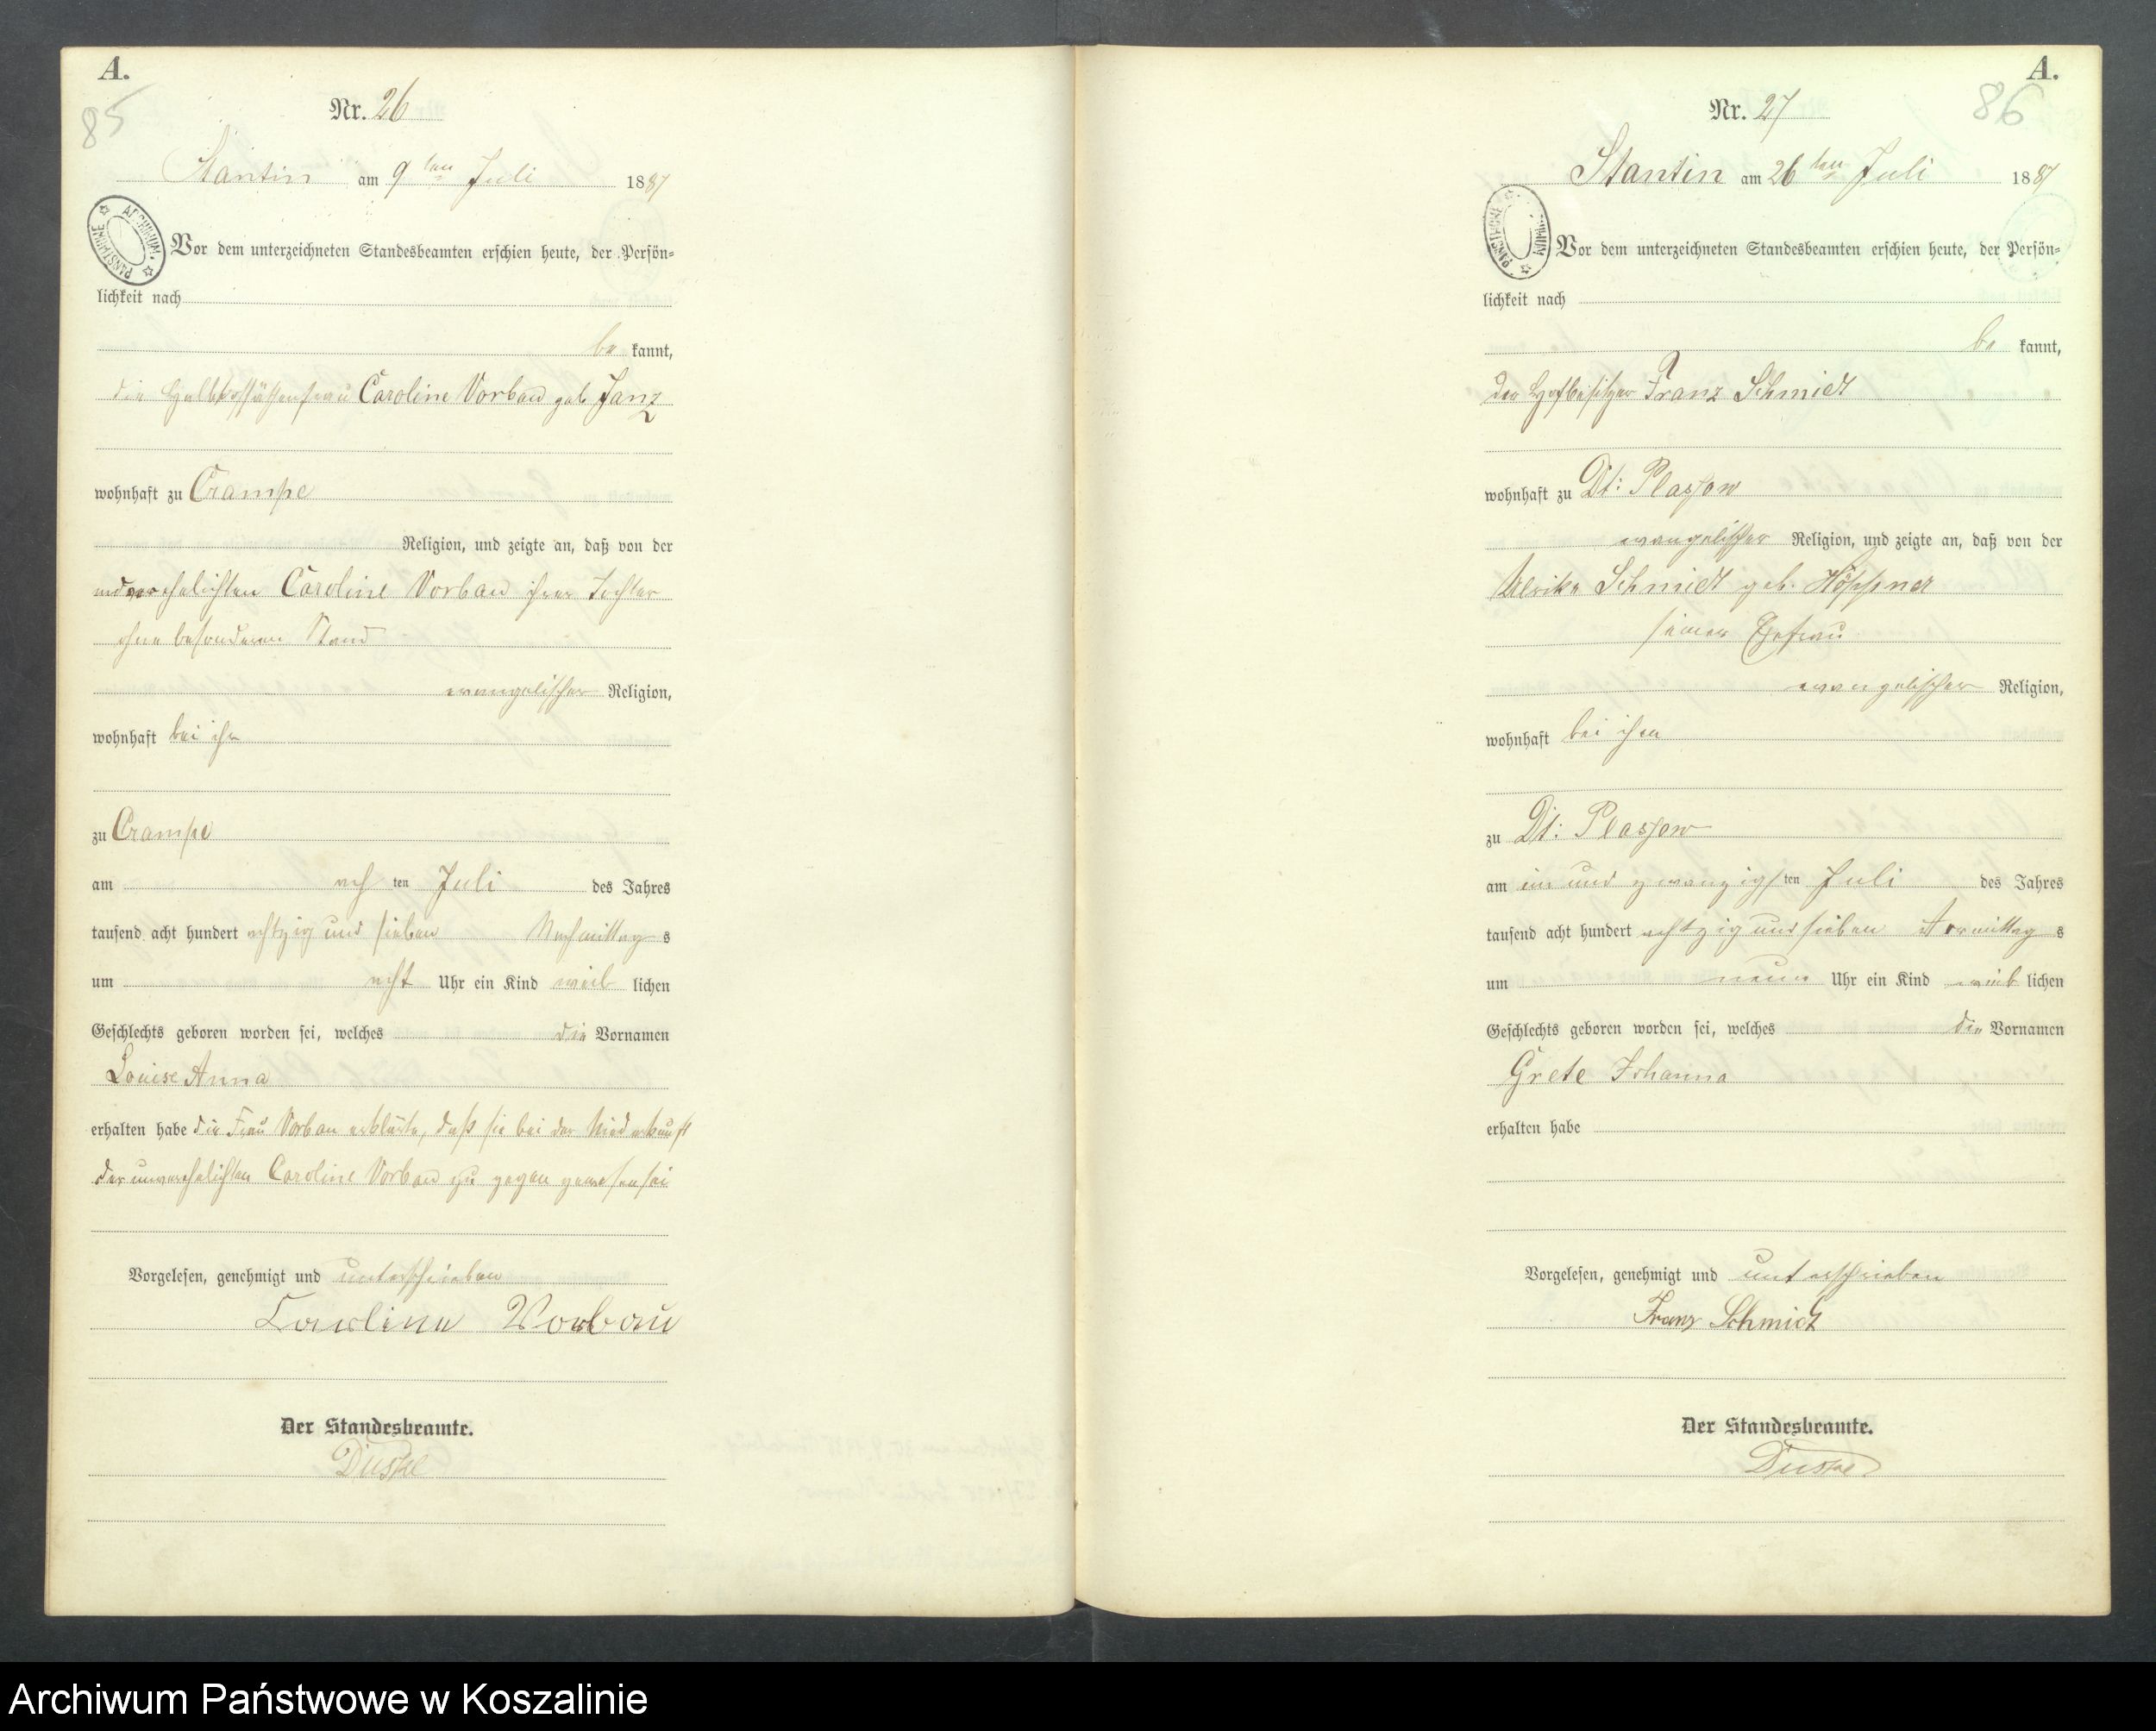 A.
85
Nr. 26
Stantin am 9ten Juli 1887
Vor dem unterzeichneten Standesbeamten erschien heute, der Persön=
lichkeit nach
be kannt,
die Halbkossäthenfrau Caroline Vorbau geb Janz
wohnhaft zu Crampe
Religion, und zeigte an, daß von der
unverehelichten Caroline Vorbau ihrer Tochter
ohne besonderen Stand
evangelischer Religion,
wohnhaft bei ihr
zu Crampe
am ach ten Juli des Jahres
tausend acht hundert achtzig und sieben Nachmittag s
um acht Uhr ein Kind weib lichen
Geschlechts geboren worden sei, welches die Vornamen
Louise Anna
erhalten habe die Frau Vorbau erklärte, daß sie bei der Niederkunft
der unverehelichten Caroline Vorbau zu gegen gewesen sei
Vorgelesen, genehmigt und unterschrieben
Carline Vorbau
Der Standesbeamte.
ARCHIWUM PAŃSTWOWE
A.
86
Nr. 27
Stantin am 26ten Juli 1887
Vor dem unterzeichneten Standesbeamten erschien heute, der Persön=
lichkeit nach
be kannt,
der Hofbesitzer Franz Schmidt
wohnhaft zu Dt: Plassow
evangelischer Religion, und zeigte an, daß von der
Ulrike Schmidt geb. Höppner
seiner Ehefrau
evangelischer Religion,
wohnhaft bei ihm
zu Dt: Plassow
am ein und zwanzigs ten Juli des Jahres
tausend acht hundert achtzig und sieben Vormittag s
um neun Uhr ein Kind weib lichen
Geschlechts geboren worden sei, welches die Vornamen
Grete Johanna
erhalten habe
Vorgelesen, genehmigt und unterschrieben
Franz Schmidt
Der Standesbeamte.
ARCHIWUM PAŃSTWOWE
Archiwum Państwowe w Koszalinie